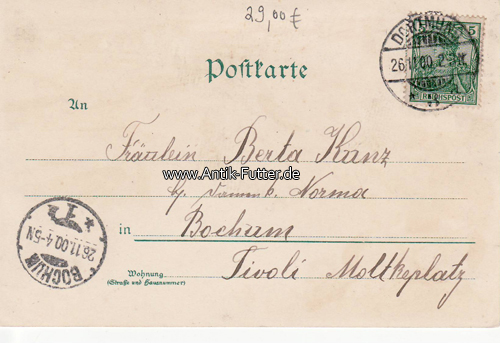 29,00 €
Postkarte
DORTMUND
26.11.00.
5
REICHSPOST
An
Fräulein Berta Kanz
www.Antik-Futter.de
Norma
in Bochum
Tivoli Moltkeplatz
Wohnung
(Straße und Hausnummer)
BOCHUM
26.11.00.4-5N
1